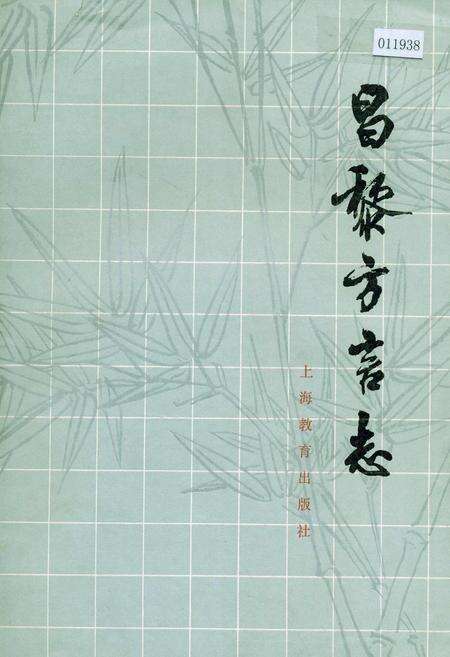 011938
昌黎方言志
上海教育出版社